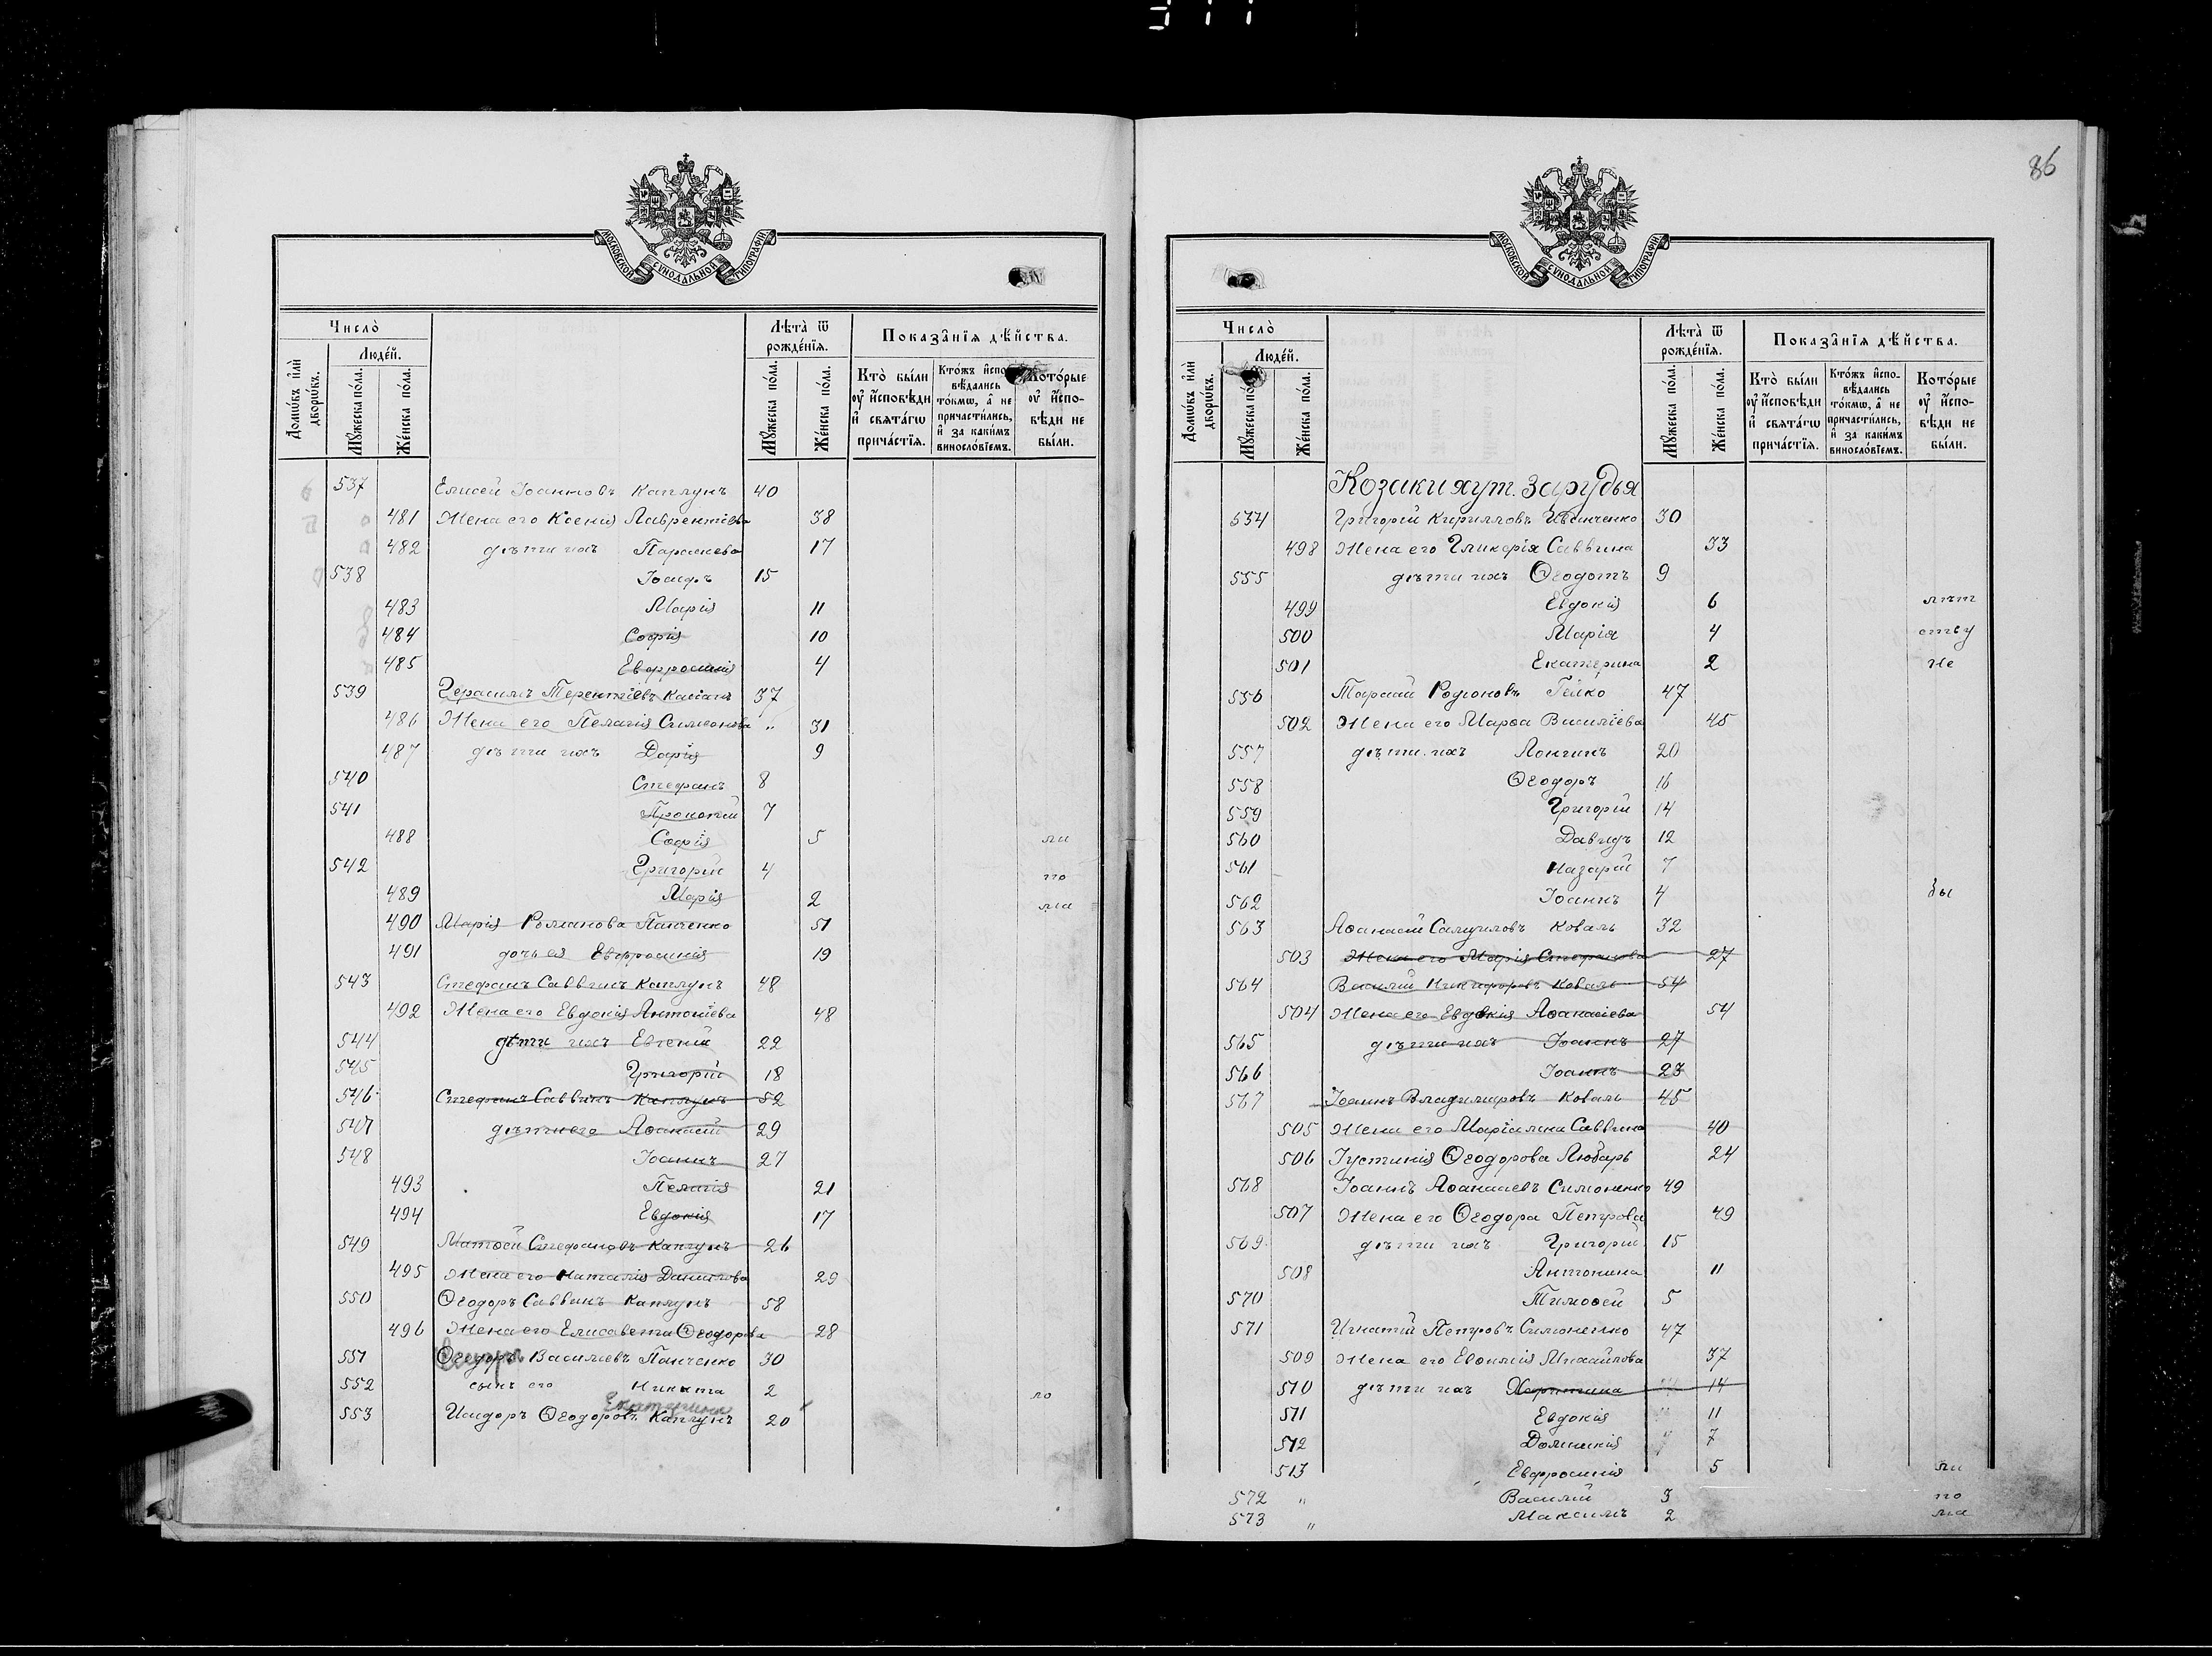 86
МОСКОВСКОЙ СѴНОДАЛЬНОЙ ТИПОГРАФІИ
Число̀
Людéй.
Домѡ́въ и҆лѝ дворѡ́въ.
Мꙋ́жеска по́ла.
Же́нска по́ла.
Лѣ́та ѿ рожде́нїѧ.
Мꙋ́жеска по́ла.
Же́нска по́ла.
Показа̑нїѧ дѣ́йства.
Кто̀ бы́ли ᲂу҆ и҆́сповѣди и҆ свѧта́гѡ прича́стїѧ.
Кто́жъ и҆спо-вѣ́дались то́кмѡ, а҆ не причасти́лись, и҆ за каки́мъ винослові́емъ.
Кото́рые ᲂу҆ и҆́спо-вѣди не бы́ли.
537 Елисей Іоанновъ Каплунъ 40
481 Жена его Ксенія Лаврентіева 38
482 дѣти ихъ Параскева 17
538 15
483 Марія 11
484 Софія 10
485 Евфросинія 4
539 Герасимъ Терентіевъ Касіанъ 37
486 Жена его Пелагія Симеонова " 31
487 дѣти ихъ Дарія 9
540 Стефанъ 8
541 Прокопій 7
488 Софія 5 ли
542 Григорій 4 по
489 Марія 2 ма
490 Марія Романова Панченко 51
491 дочь ея Евфросинія 19
543 Стефанъ Саввинъ Каплунъ 48
492 Жена его Евдокія Антоніева 48
544 дѣти ихъ Евгеній 22
545 Григорій 18
546 Стефанъ Саввинъ Каплунъ 52
547 дѣти его Аѳанасій 29
548 Іоаннъ 27
493 Пелагія 21
494 Евдокія 17
549 Матѳей Стефановъ Каплунъ 26
495 Жена его Наталія Данилова 29
550 Ѳеодоръ Саввинъ Каплунъ 58
496 Жена его Елисавета Ѳеодорова 28
551 Ѳеодоръ Василіевъ Панченко 30
552 сынъ его Никита 2 ло
Екатерина
553 Исидоръ Ѳеодоровъ Каплунъ 20
МОСКОВСКОЙ СѴНОДАЛЬНОЙ ТИПОГРАФІИ
Число̀
Людéй.
Домѡ́въ и҆лѝ дворѡ́въ.
Мꙋ́жеска по́ла.
Же́нска по́ла.
Лѣ́та ѿ рожде́нїѧ.
Мꙋ́жеска по́ла.
Же́нска по́ла.
Показа̑нїѧ дѣ́йства.
Кто̀ бы́ли ᲂу҆ и҆́сповѣди и҆ свѧта́гѡ прича́стїѧ.
Кто́жъ и҆спо-вѣ́дались то́кмѡ, а҆ не причасти́лись, и҆ за каки́мъ винослові́емъ.
Кото́рые ᲂу҆ и҆́спо-вѣди не бы́ли.
Козаки хут. Зарудья
534 Григорій Кирилловъ Иванченко 30
498 Жена его Гликерія Саввина 33
555 дѣти ихъ Ѳеодотъ 9
499 Евдокія 6 лѣт
500 Марія 4 ству
501 Екатерина 2 не
556 Тарасій Родіоновъ Гейко 47
502 Жена его Марѳа Василіева 45
557 дѣти ихъ Лонгинъ 20
558 Ѳеодоръ 16
559 Григорій 14
560 Давидъ 12
561 Назарій 7
562 Іоаннъ 4 бы
563 Аѳанасій Самуиловъ Коваль 32
503 Жена его Марія Стефанова 27
564 Василій Никифоровъ Коваль 54
504 Жена его Евдокія Аѳанасіева 54
565 дѣти ихъ Іоаннъ 27
566 Іоаннъ 23
567 Іоаннъ Владимировъ Коваль 45
505 Жена его Маріамна Саввина 40
506 Іустинія Ѳеодорова Любарь 24
568 Іоаннъ Аѳанасіевъ Симоненко 49
507 Жена его Ѳеодора Петрова 49
569 дѣти ихъ Григорій 15
508 Антонина 11
570 Тимоѳей 5
571 Игнатій Петровъ Симоненко 47
509 Жена его Евѳимія Михайлова 37
510 дѣти ихъ Харитина 14
511 Евдокія " 11
512 Домникія " 7
513 Евфросинія 5 ли
572 " Василій 3 по
573 " Максимъ 2 ма